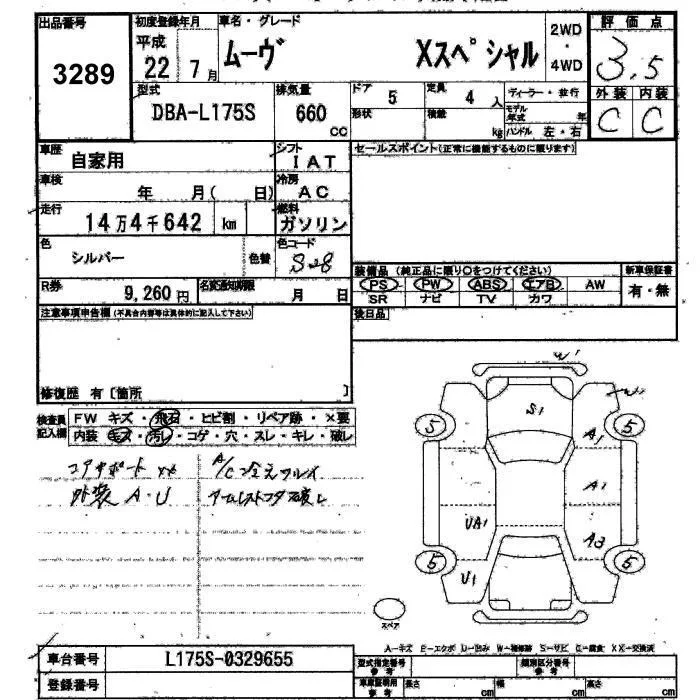 出品番号 初度登録年月 車名・グレード 2WD 評価点
3289 平成 22 7月 ムーヴ Xスペシャル ・ 3.5
4WD
外装 内装
C C
型式 排気量 ドア 定員 ディーラー・並行
DBA-L175S 660 CC 5 4人
形状 積載 kg モデル年式 年
ハンドル 左・右
車歴 自家用 シフト IAT セールスポイント(正常に機能するものに限ります)
車検 年 月( 日) 冷房 AC
走行 14万4千642 km 燃料 ガソリン
色 シルバー 色替 色コード S28
装備品 (純正品に限り○をつけてください) 新車保証書
R券 9,260円 名変通知期限 月 日 PS PW ABS エアB AW 有・無
SR ナビ TV カワ
注意事項申告欄(不具合内容等は具体的に記入して下さい) 後日品
修復歴 有〔箇所 〕
検査員記入欄 FW キズ・飛石・ヒビ割・リペア跡・×要
内装 キズ・汚レ・コゲ・穴・スレ・キレ・破レ
コアサポート A/C冷え
外装 A・U アームレストフタ破レ
W1
S1
5 A1 5
A1
UA1 A3
5 U1 5
スペア
A-キズ E-エクボ U-凹み W-補修跡 S-サビ C-腐食 XX-交換済
車台番号 L175S-0329655 型式指定番号 参考 類別区分番号 参考
登録番号 車庫証明用 参考 長さ cm 幅 cm 高さ cm